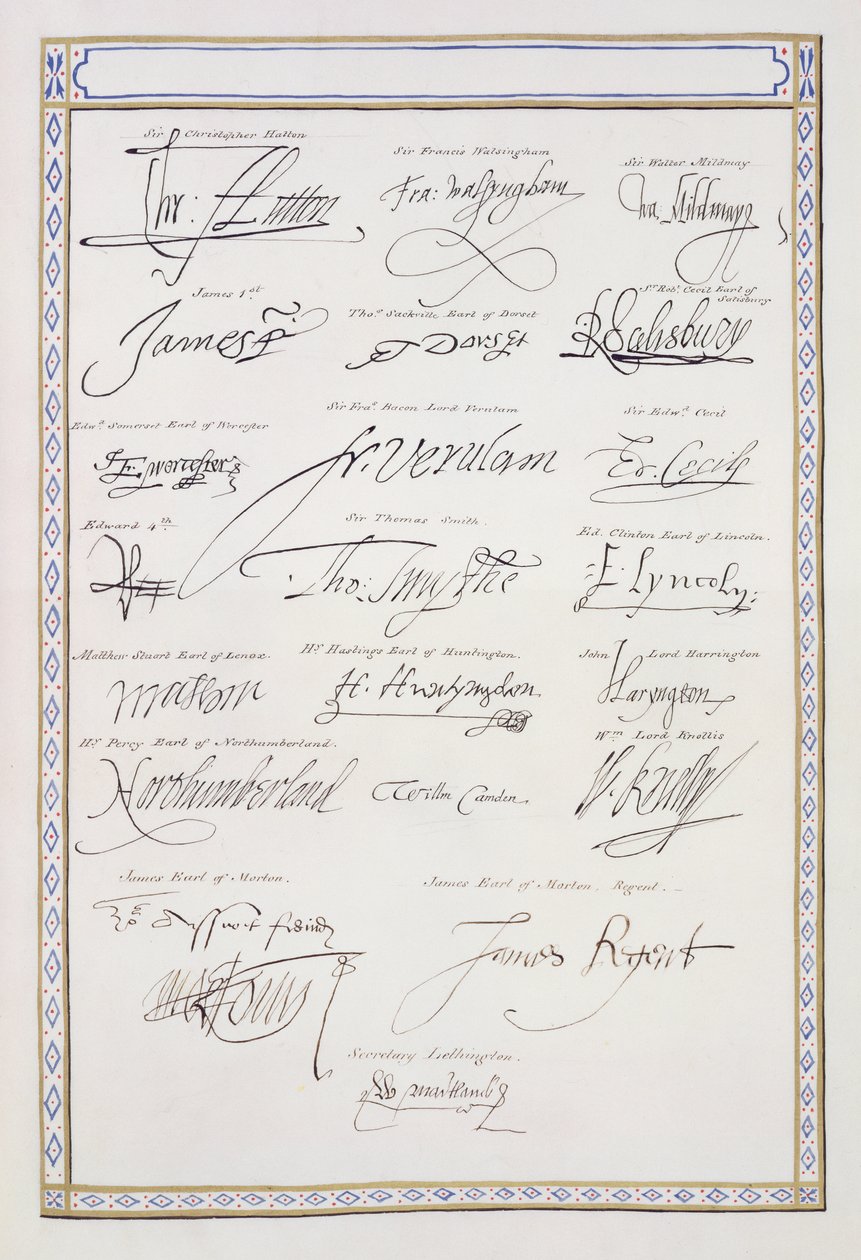 Sir Christopher Hatton
Chr: Hatton
Sir Francis Walsingham
Fra: Walsyngham
Sir Walter Mildmay
Wa: Mildmay
James 1st
James R
Thos. Sackville Earl of Dorset
T Dorset
Sr. Robt. Cecil Earl of
Salisbury
R Salisbury
Edwd. Somerset Earl of Worcester
E. Worcester
Sir Fras. Bacon Lord Verulam
Fr. Verulam
Sir Edwd. Cecil
Ed. Cecill
Edward 4th
Sir Thomas Smith.
Tho: Smythe
Ed. Clinton Earl of Lincoln.
E. Lyncoln
Matthew Stuart Earl of Lenox.
Hy. Hastings Earl of Huntington.
H. Huntyngdon
John Lord Harrington
Haryngton
Hy. Percy Earl of Northumberland.
Northumberland
Willm Camden.
Wm. Lord Knollis
W. Knollys
James Earl of Morton.
assurit freind
Mortoun
James Earl of Morton, Regent. -
James Regent
Secretary Lethington.
W Maitland